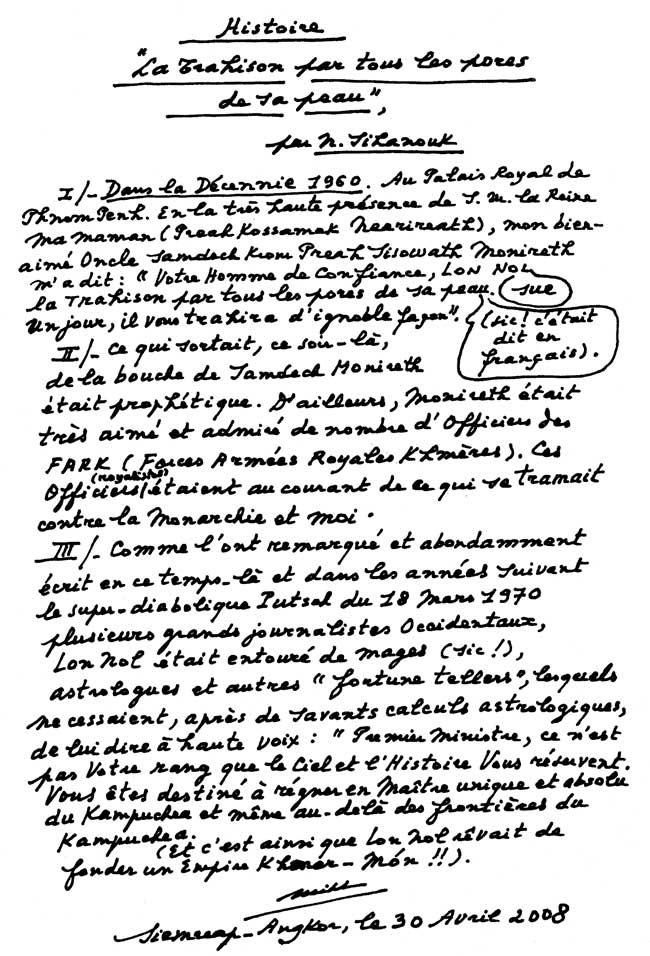 Histoire
"La Trahison par tous les pores
de sa peau",
par N. Sihanouk
I/- Dans la Décennie 1960. Au Palais Royal de
Phnom Penh. En la très haute présence de S. M. la Reine
ma maman (Preah Kossamak Nearireath), mon bien-
aimé Oncle Samdech Krom Preah Sisowath Monireth
m'a dit : "Votre Homme de Confiance, LON NOL
sue
la Trahison par tous les pores de sa peau.
Un jour, il vous trahira d'ignoble façon".
(sic ! c'était
dit en
français).
II/- Ce qui sortait, ce soir-là,
de la bouche de Samdech Monireth
était prophétique. D'ailleurs, Monireth était
très aimé et admiré de nombre d'Officiers des
FARK (Forces Armées Royales Khmères). Ces
(royalistes)
Officiers étaient au courant de ce qui se tramait
contre la Monarchie et moi.
III/- Comme l'ont remarqué et abondamment
écrit en ce temps-là et dans les années suivant
le super-diabolique Putsch du 18 Mars 1970
plusieurs grands journalistes Occidentaux,
Lon Nol était entouré de mages (sic !),
astrologues et autres "fortune tellers", lesquels
ne cessaient, après de savants calculs astrologiques,
de lui dire à haute voix : "Premier Ministre, ce n'est
pas Votre rang que le Ciel et l'Histoire Vous réservent.
Vous êtes destiné à régner en Maître unique et absolu
du Kampuchea et même au-delà des frontières du
Kampuchea.
(Et c'est ainsi que Lon Nol rêvait de
fonder un Empire Khmer-Môn !!).
Siemreap-Angkor, le 30 Avril 2008